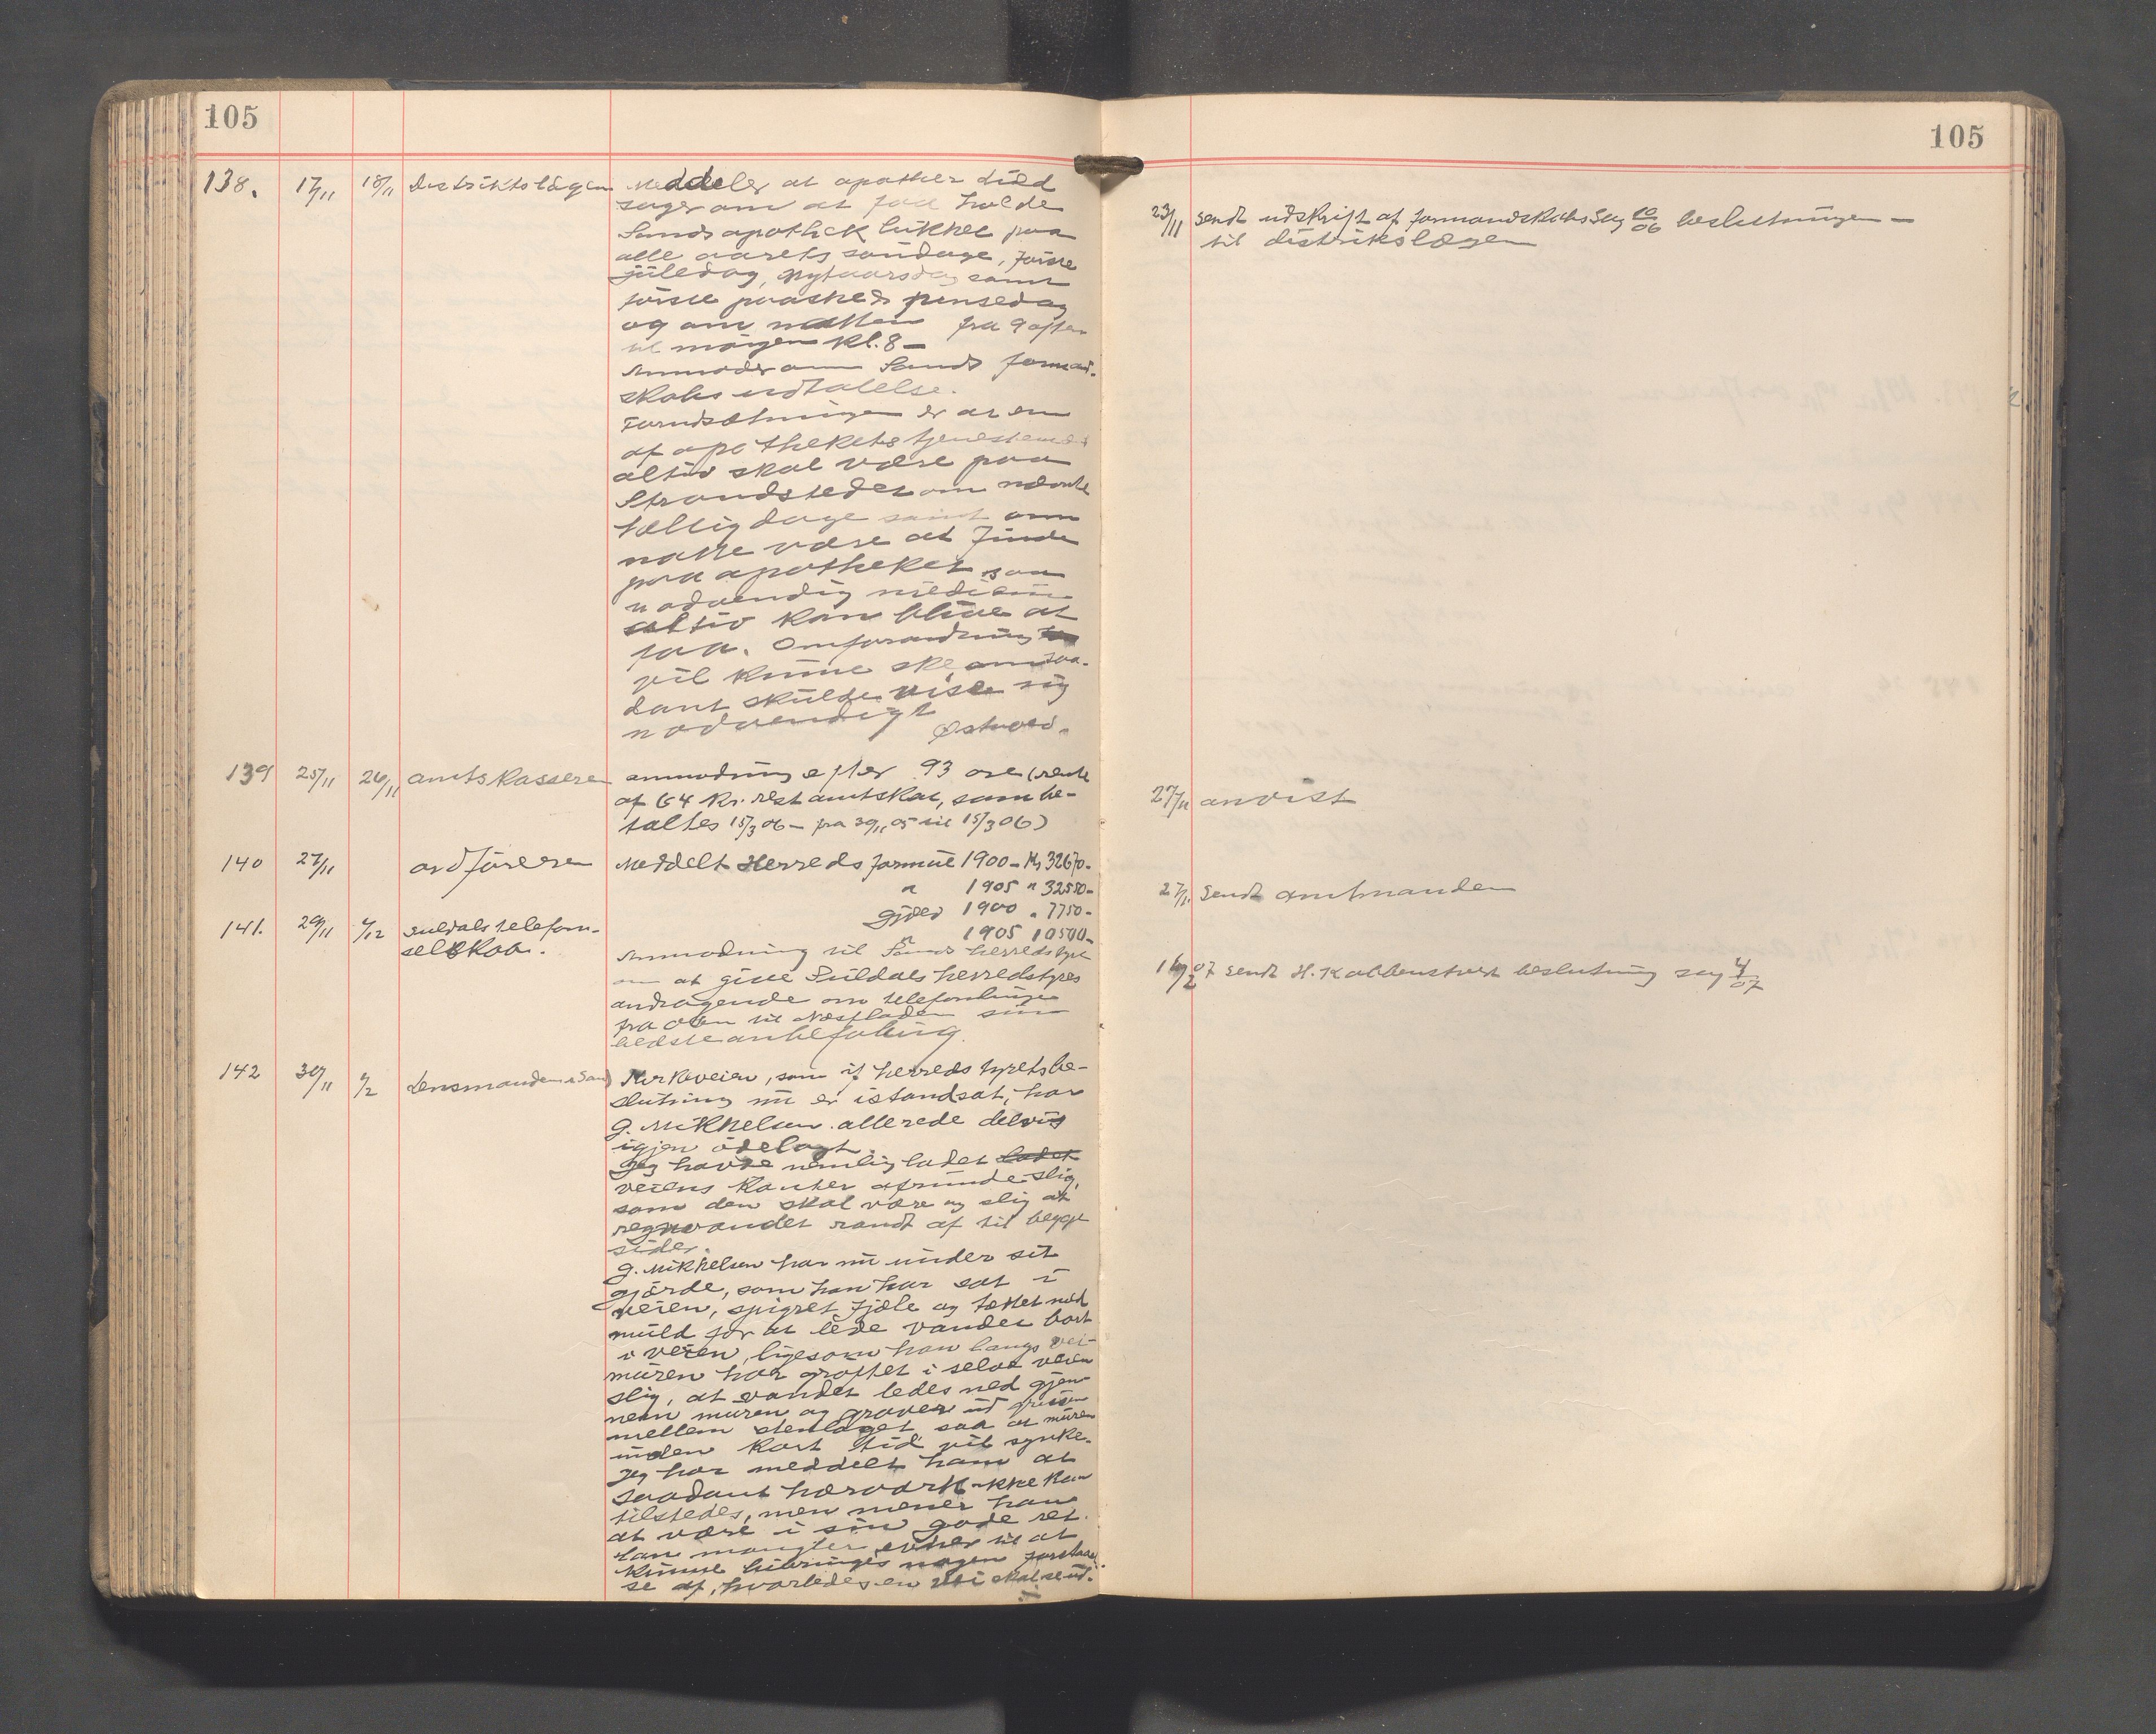 105
138. 17/11 18/11 Distriktslägen Meddeler at apother
søger om at faa holde
Sands apothek lukket paa
alle aarets søndage, første
juledag, Nytaarsdag samt
første paaske & pinsedag
og om natten fra 9 aften
til morgen Kl. 8 —
Anmoder om Sands formand-
skabs udtalelse.
Forudsætningen er at en
af apothekets tjenestemænd
altid skal være paa
Strandstedet om nævnte
hellig dage samt om
natte være at finde
paa apotheket saa
nødvendig medicin
altid kan blive at
faa. Omforandring
vil kunne ske om saa-
dant skulde vise sig
nødvendigt
Østvold.
139 25/11 26/11 amtskassere anmodning efter 93 øre (rente
af 64 Kr. rest amtskat, som be-
taltes 15/3 06 — fra 30/11 05 til 15/3 06)
140 27/11 ordføreren Meddelt Herreds formue 1900 — Kr 32670-
" 1905 " 32550-
Gjeld 1900 " 7750-
" 1905 10500-
141. 29/11 4/12 Suldals telefon-
selskab.
Anmodning til Sands herredstyre
om at give Suldals herredstyres
andragende om telefonlinje
fra til sin
bedste anbefaling.
142 30/11 Lensmanden i Sand Kirkeveien, som if herredstyrets be-
slutning nu er istandsat, har
G. Mikkelsen allerede delvis
igjen ødelagt.
Jeg havde nemlig ladet ladet
veiens Kanter afrunde slig,
som den skal være og slig at
regnvandet randt af til begge
sider.
G. Mikkelsen har nu under sit
gjærde, som han har sat i
veien, spigret fjæle og tættet med
muld for at lede vandet bort
i veien, ligesom han langs vei-
muren har grøftet i selve veien
slig, at vandet ledes ned gjen-
nem muren og graver ud grusen
mellem stenlaget saa at muren
inden kort tid vil synke.
Jeg har meddelt ham at
saadant hærværk ikke kan
tilstedes, men mener han
at være i sin gode ret.
Han mangler evner til at
kunne bibringes nogen forstaael
se af, hvorledes en vei skal se ud.
105
23/11 Sendt udskrift af formandskabs Sag 10/06 beslutningen —
til distrikslægen
27/11 anvist
27/11 Sendt amtmanden
16/2 07 Sendt H. Kolbenstvedt beslutning sag 4/07